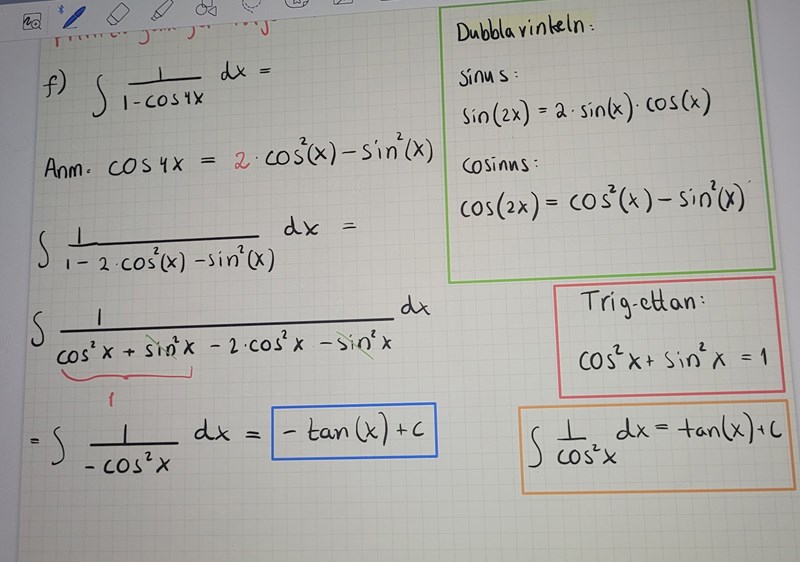 f) ∫ 1/(1-cos4x) dx =
Anm. cos4x = 2·cos²(x)-sin²(x)
∫ 1/(1-2·cos²(x)-sin²(x)) dx =
∫ 1/(cos²x + sin²x - 2·cos²x - sin²x) dx
1
= ∫ 1/(-cos²x) dx = -tan(x)+c
Dubblavinkeln:
sinus:
sin(2x) = 2·sin(x)·cos(x)
cosinus:
cos(2x) = cos²(x)-sin²(x)
Trig-ettan:
cos²x + sin²x = 1
∫ 1/cos²x dx = tan(x)+c